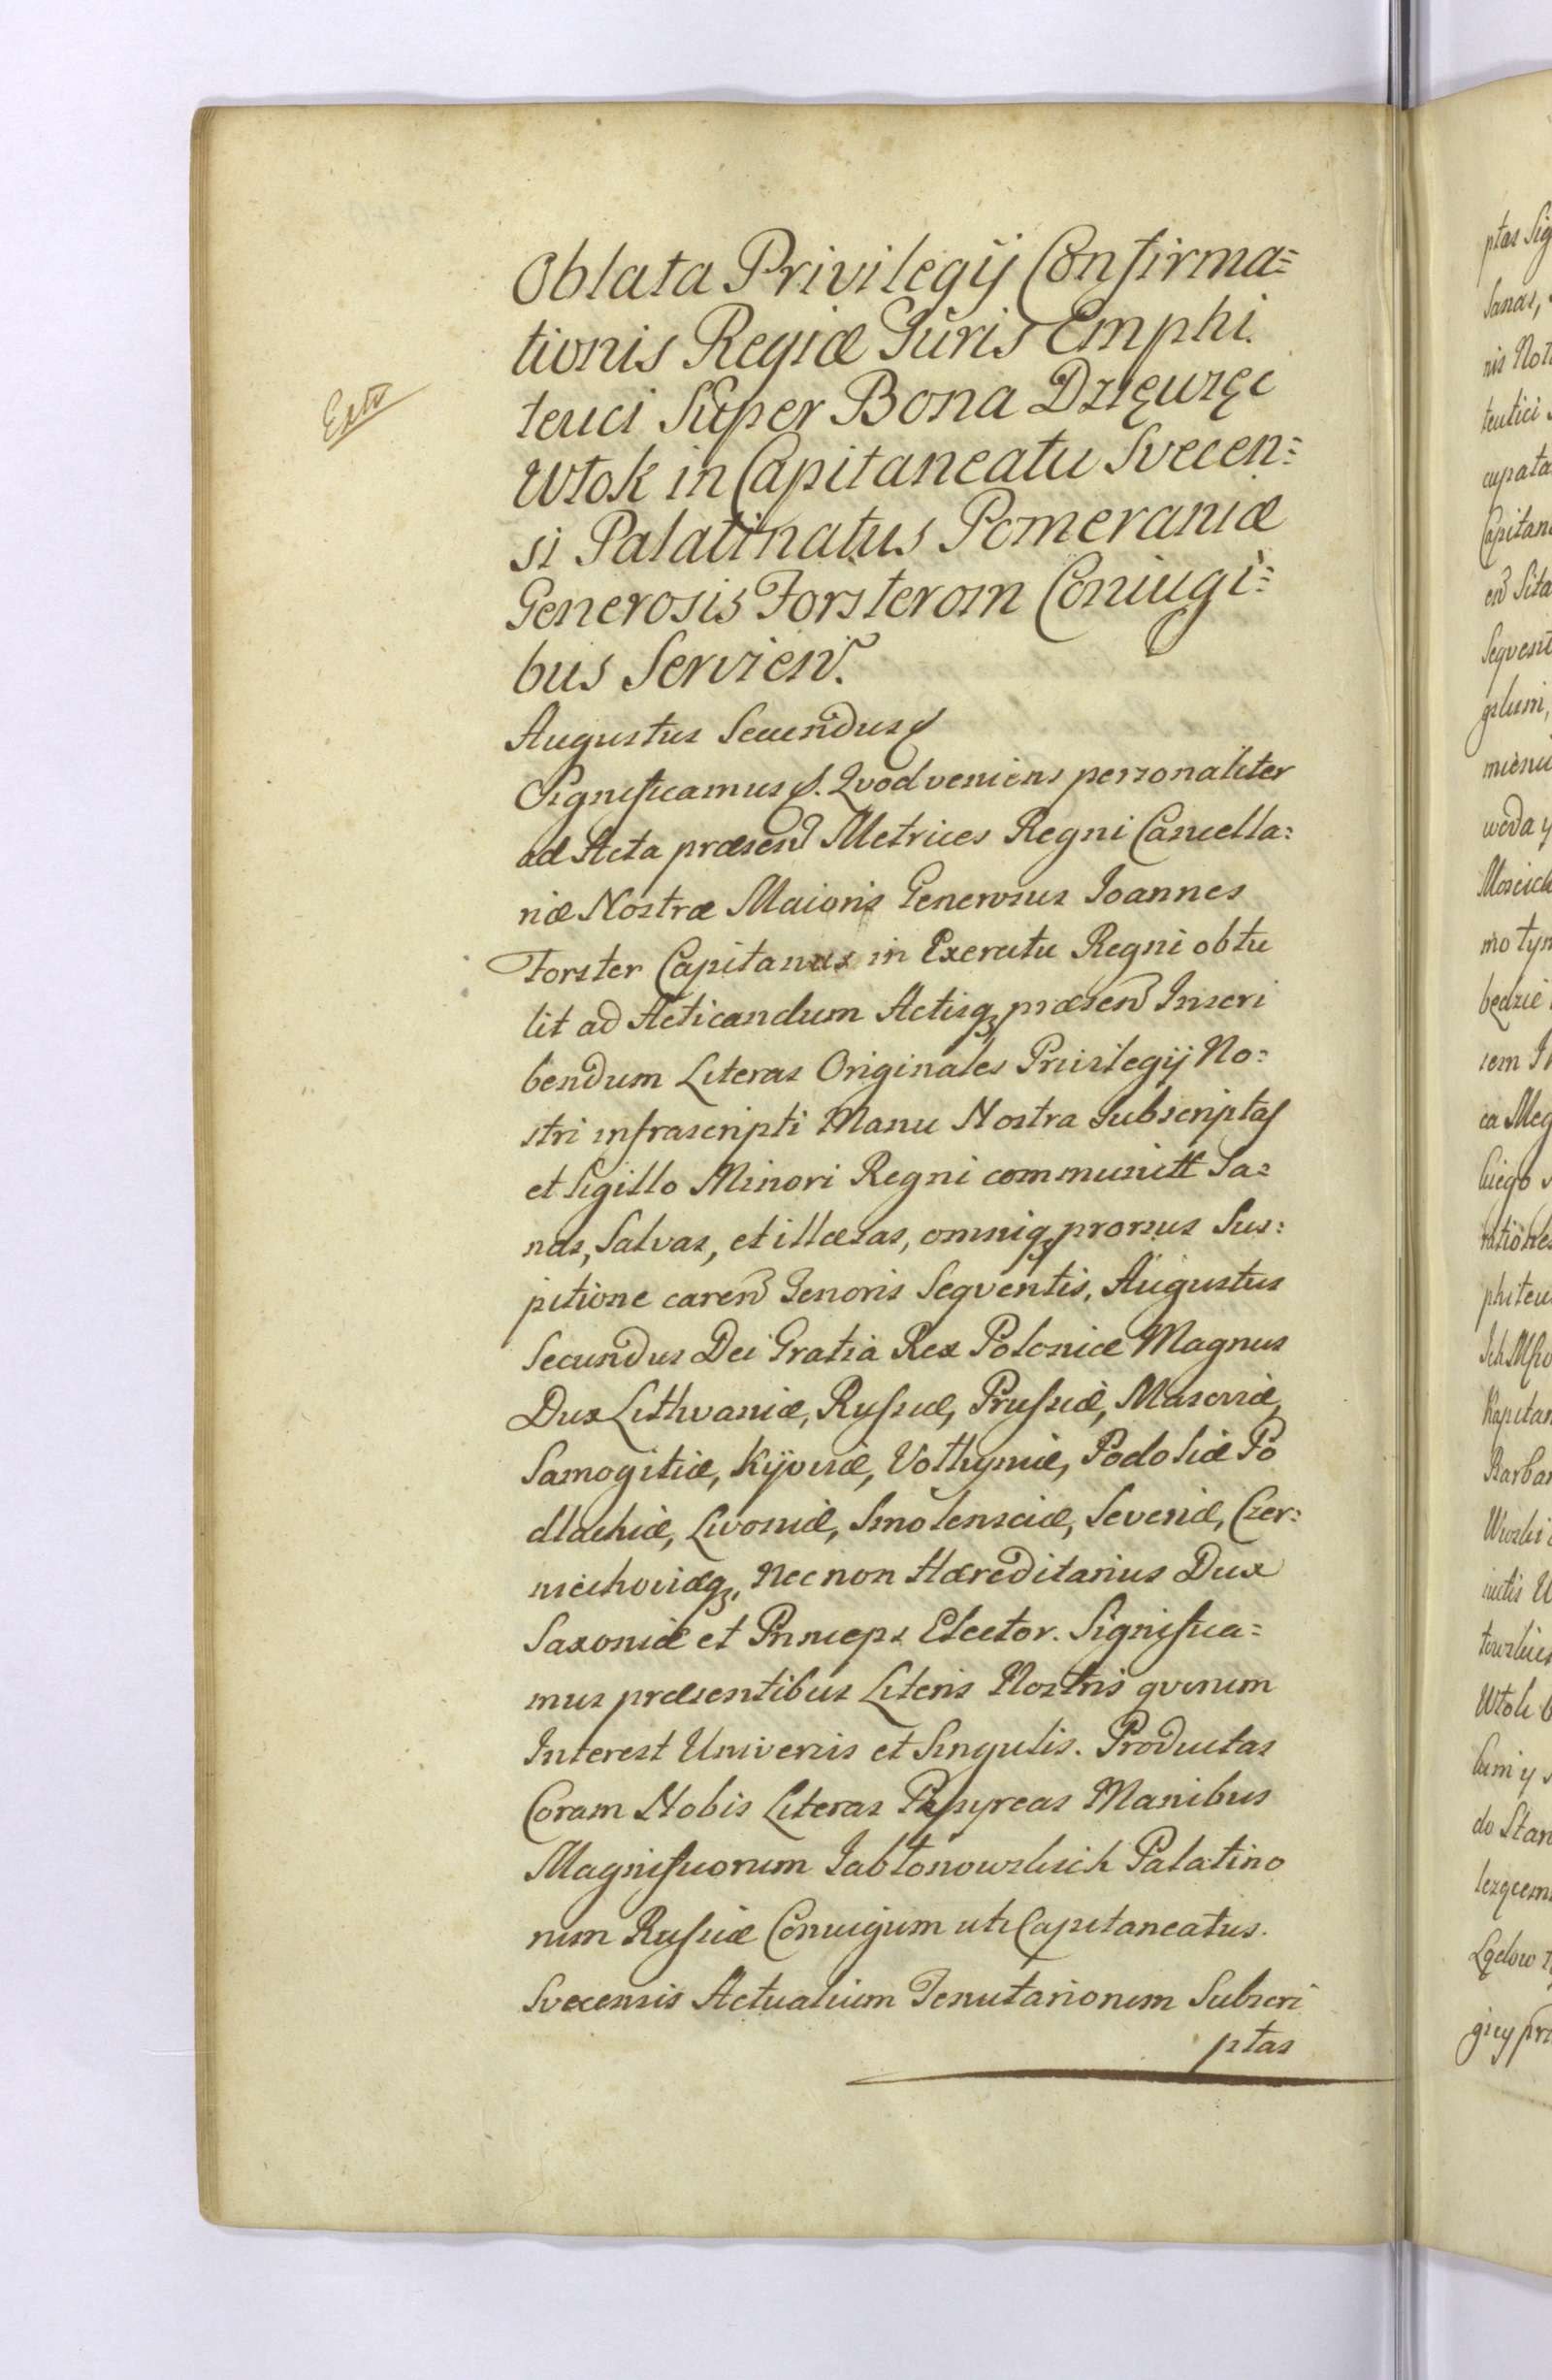 Oblata Privilegij Confirma=
tionis Regiæ Iuris Emphi.
teuci Super Bona Dzięwięc
Włok in Capitaneatu Svecen=
si Palatinatus Pomeraniæ
Generosis Forsterom Coniugi=
bus Servien.
Augustus Secundus
Significamus Qvod veniens personaliter
ad Acta præsen Metrices Regni Cancella=
riæ Nostræ Maioris Generosus Ioannes
Forster Capitanus in Exercitu Regni obtu
lit ad Acticandum Actisq præsen Inscri
bendum Literas Originales Privilegij No=
stri infrascripti Manu Nostra Subscriptas
et Sigillo Minori Regni communitt Sa=
nas, Salvas, et illæsas, omniq prorsus Sus=
pitione caren Tenoris Seqventis. Augustus
Secundus Dei Gratia Rex Poloniæ Magnus
Dux Lithvaniæ, Russiæ, Prussiæ, Masoviæ,
Samogitiæ, Kijoviæ, Volhyniæ, Podoliæ Po
dlachiæ, Livoniæ, Smolensciæ, Severiæ, Czer=
niechoviæq, Nec non Hæreditarius Dux
Saxoniæ et Princeps Elector. Significa=
mus præsentibus Literis Nostris qvorum
Interest Universis et Singulis. Productas
Coram Nobis Literas Papyreas Manibus
Magnificorum Jabłonowskich Palatino
rum Russiæ Coniugum uti Capitaneatus.
Svecensis Actualium Tenutariorum Subscri
ptas